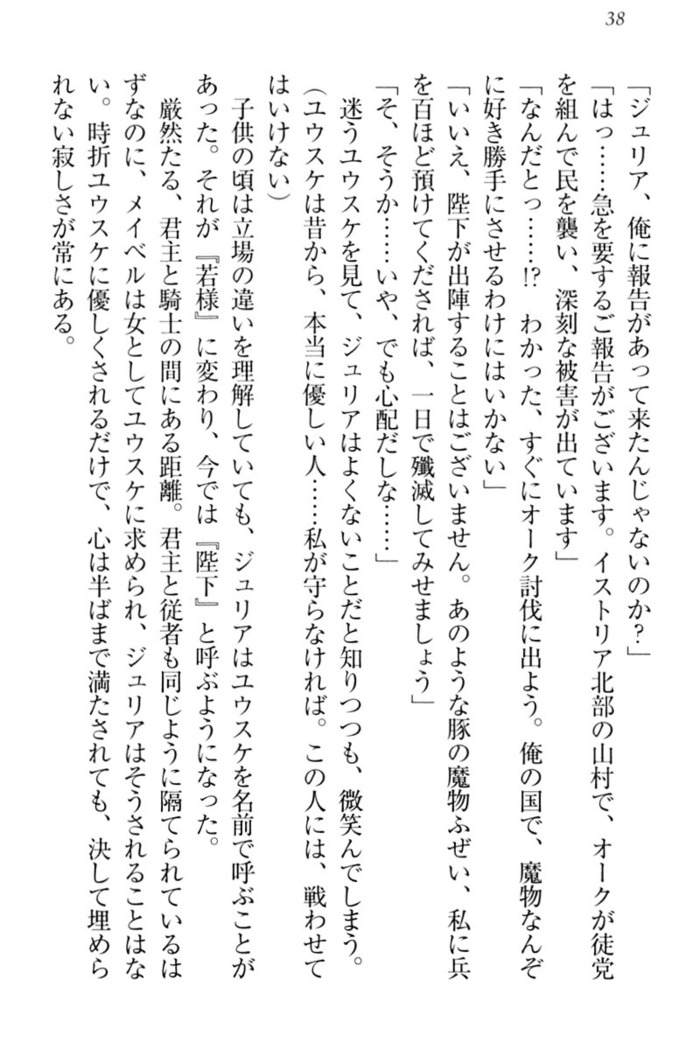 38
「ジュリア、俺に報告があって来たんじゃないのか？」
「はっ……急を要するご報告がございます。イストリア北部の山村で、オークが徒党
を組んで民を襲い、深刻な被害が出ています」
「なんだとっ……!?　わかった、すぐにオーク討伐に出よう。俺の国で、魔物なんぞ
に好き勝手にさせるわけにはいかない」
「いいえ、陛下が出陣することはございません。あのような豚の魔物ふぜい、私に兵
を百ほど預けてくだされば、一日で殲滅してみせましょう」
「そ、そうか……いや、でも心配だしな……」
　迷うユウスケを見て、ジュリアはよくないことだと知りつつも、微笑んでしまう。
（ユウスケは昔から、本当に優しい人……私が守らなければ。この人には、戦わせて
はいけない）
　子供の頃は立場の違いを理解していても、ジュリアはユウスケを名前で呼ぶことが
あった。それが『若様』に変わり、今では『陛下』と呼ぶようになった。
　厳然たる、君主と騎士の間にある距離。君主と従者も同じように隔てられているは
ずなのに、メイベルは女としてユウスケに求められ、ジュリアはそうされることはな
い。時折ユウスケに優しくされるだけで、心は半ばまで満たされても、決して埋めら
れない寂しさが常にある。